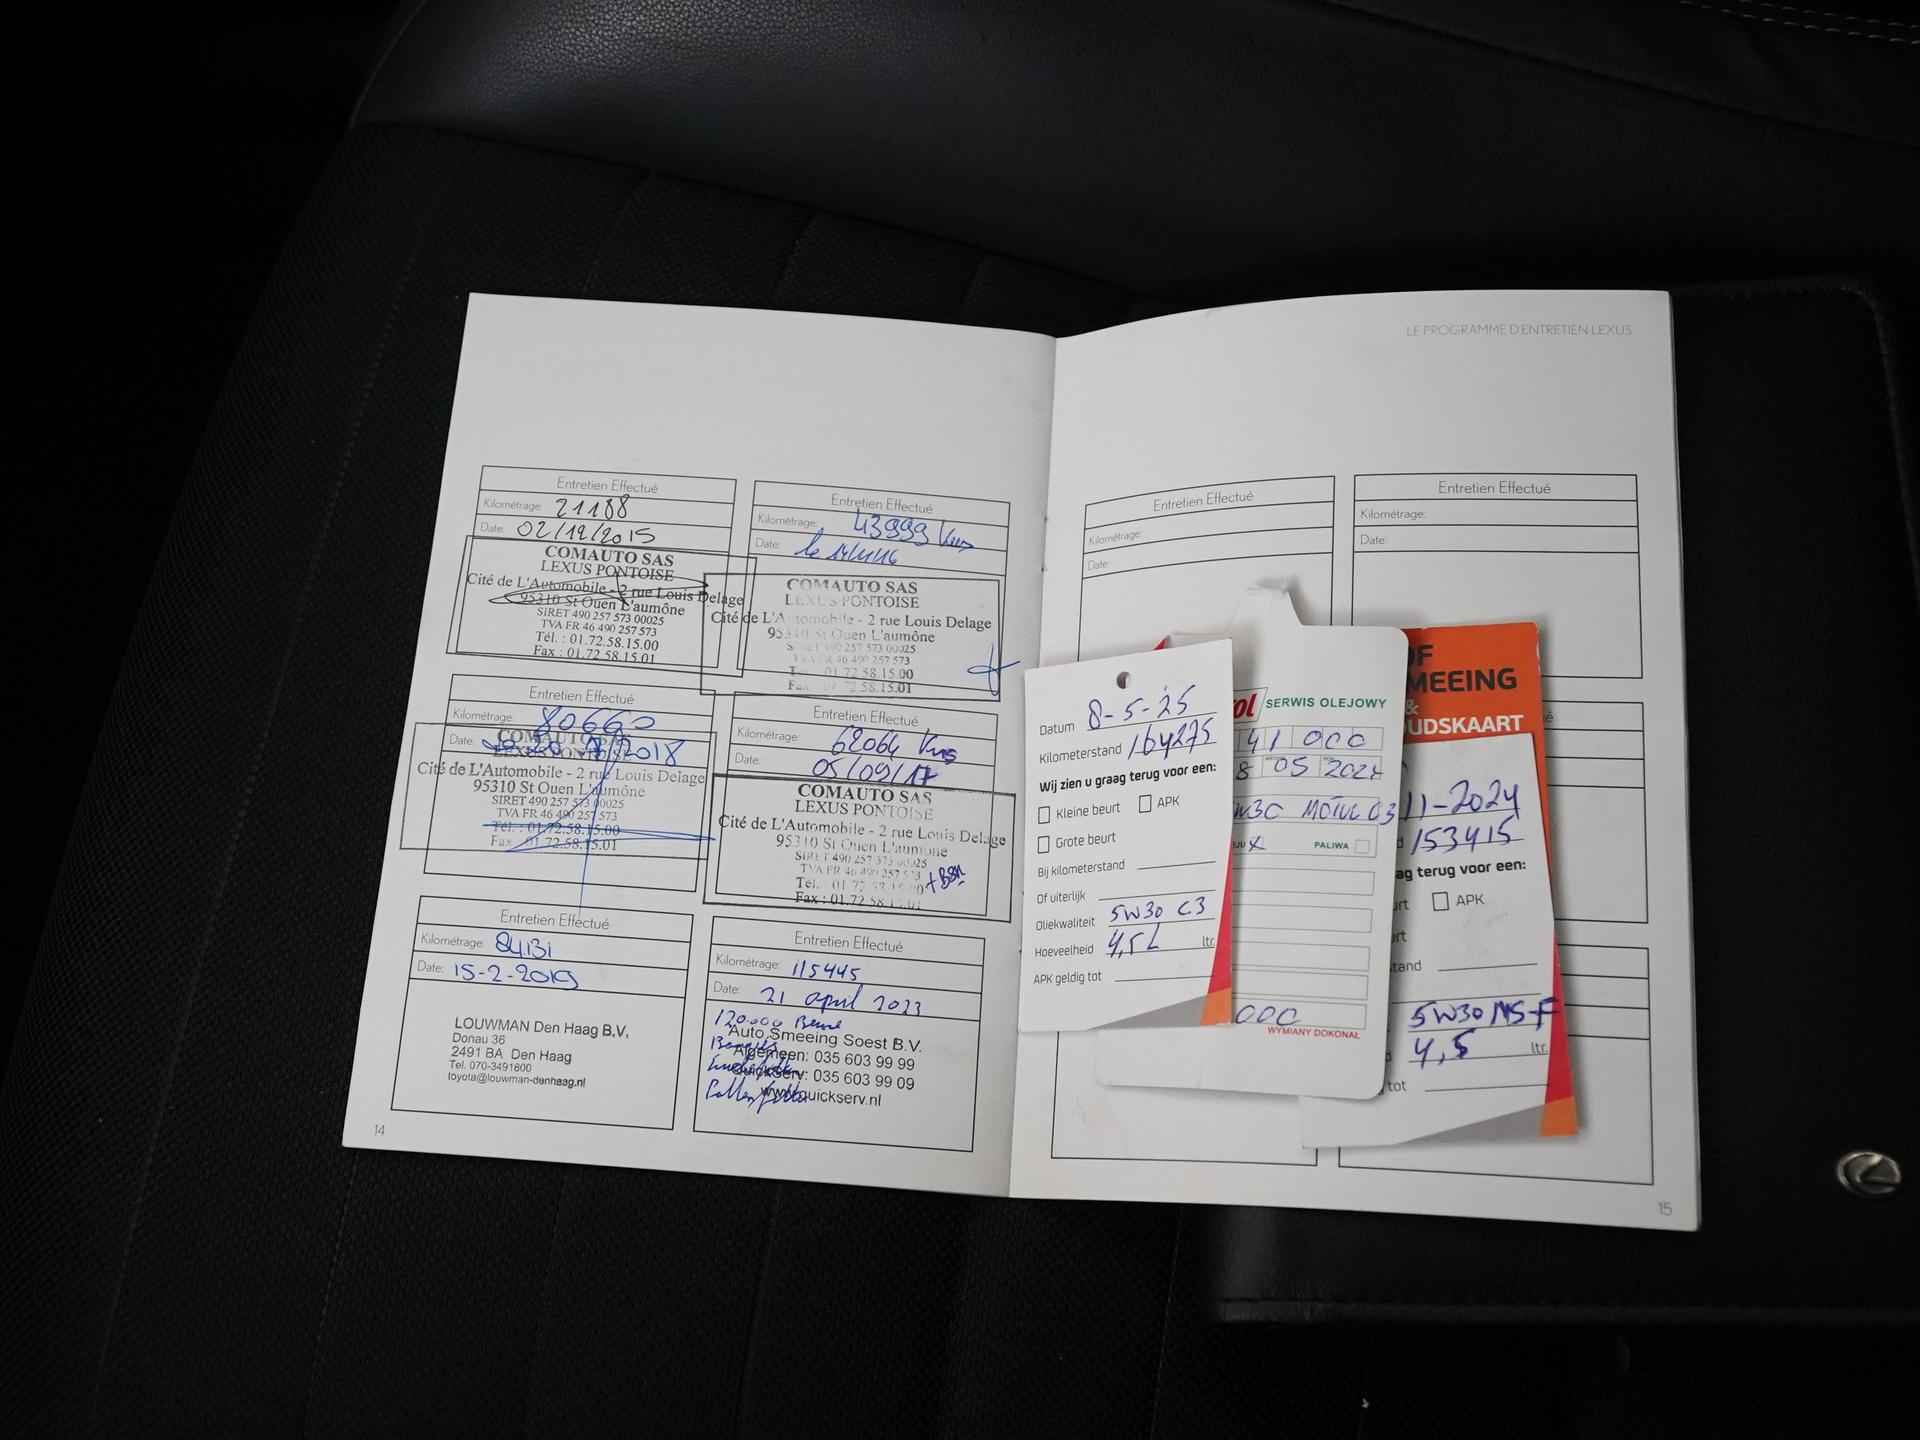 LE PROGRAMME D'ENTRETIEN LEXUS
Entretien Effectué
Kilométrage: 21188
Date: 02/12/2015
COMAUTO SAS
LEXUS PONTOISE
Cité de L'Automobile - 2 rue Louis Delage
95310 St Ouen L'aumône
SIRET 490 257 573 00025
TVA FR 46 490 257 573
Tél. : 01.72.58.15.00
Fax : 01.72.58.15.01
Entretien Effectué
Kilométrage: 43999 Kms
Date: le
COMAUTO SAS
LEXUS PONTOISE
Cité de L'Automobile - 2 rue Louis Delage
95310 St Ouen L'aumône
SIRET 490 257 573 00025
TVA FR 46 490 257 573
Tél. : 01.72.58.15.00
Fax : 01.72.58.15.01
Entretien Effectué
Kilométrage: 80660
Date: 2018
COMAUTO SAS
LEXUS PONTOISE
Cité de L'Automobile - 2 rue Louis Delage
95310 St Ouen L'aumône
SIRET 490 257 573 00025
TVA FR 46 490 257 573
Tél. : 01.72.58.15.00
Fax : 01.72.58.15.01
Entretien Effectué
Kilométrage: 62064 Kms
Date: 05/09/17
COMAUTO SAS
LEXUS PONTOISE
Cité de L'Automobile - 2 rue Louis Delage
95310 St Ouen L'aumône
SIRET 490 257 573 00025
TVA FR 46 490 257 573
Tél. : 01.72.58.15.00
Fax : 01.72.58.15.01
Entretien Effectué
Kilométrage: 84131
Date: 15-2-2019
LOUWMAN Den Haag B.V.
Donau 36
2491 BA Den Haag
Tel. 070-3491600
toyota@louwman-denhaag.nl
Entretien Effectué
Kilométrage: 115445
Date: 21 april 2023
120.000
Auto Smeeing Soest B.V.
Algemeen: 035 603 99 99
QuickServ: 035 603 99 09
www.quickserv.nl
14
Entretien Effectué
Kilométrage:
Date:
Entretien Effectué
Kilométrage:
Date:
Datum 8-5-25
Kilometerstand 164275
Wij zien u graag terug voor een:
Kleine beurt APK
Grote beurt
Bij kilometerstand
Of uiterlijk
Oliekwaliteit 5W30 C3
Hoeveelheid 4,5L ltr.
APK geldig tot
ol SERWIS OLEJOWY
41 000
8 05 2024
W30 MOTUL C3
X PALIWA
000
WYMIANY DOKONAŁ
OF
MEEING
&
UDSKAART
11-2024
153415
ag terug voor een:
urt APK
rt
tand
5W30 MS-F
4,5 ltr.
tot
15